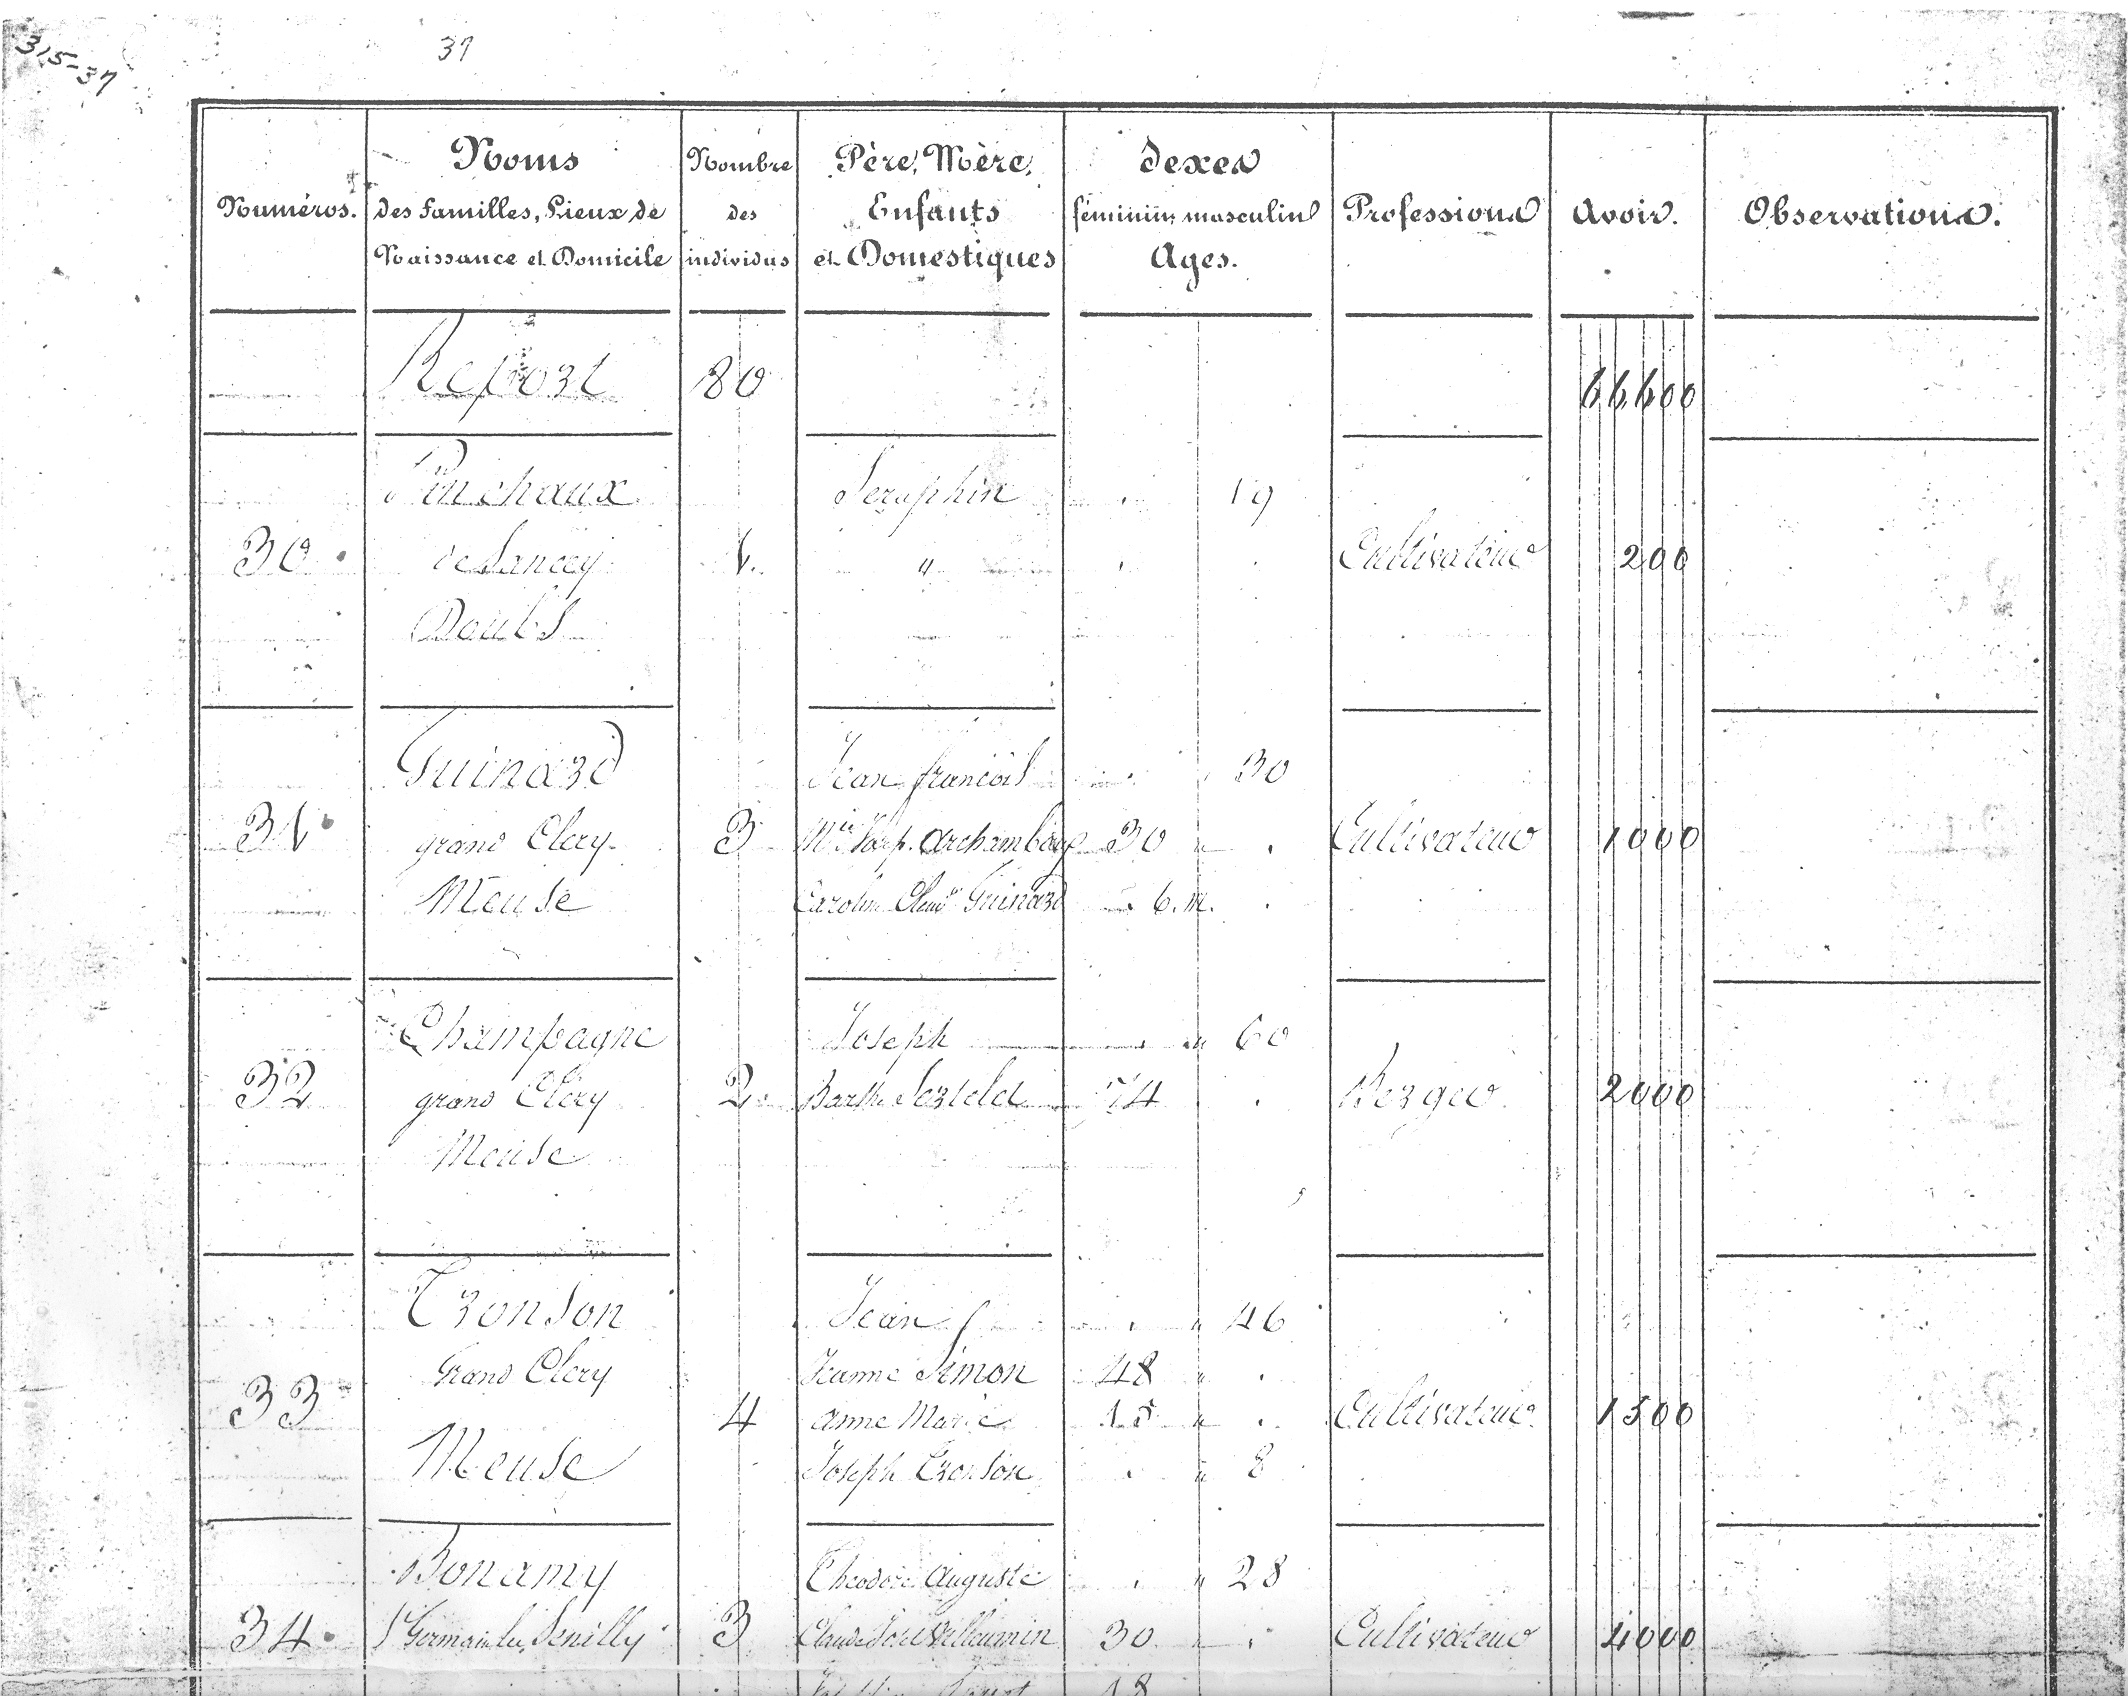 315-37
37
Numéros.
Noms
des familles, Lieux de
Naissance et Domicile
Nombre
des
individus
Père, Mère,
Enfants
et Domestiques
Sexes
féminin, masculin
Ages.
Professions
Avoir.
Observations.
Report 80 66,600
Pinchaux Seraphin 19
30 de Sancey 1 " Cultivateur 200
Doubs
Guinard Jean francois 30
31 grand Clery 3 Archambaux 30 Cultivateur 1000
Meuse Carolin Guinard 6.m.
Champagne Joseph 60
32 grand Clery 2 Barth. Berger 2000
Meuse
Tronson Jean 46
Grand Clery Jeanne Simon 48
33 4 anne Marie 15 Cultivateur 1500
Meuse Joseph Tronson 8
Bonamy Theodore Auguste 28
34 St Germain les Senilly 3 Claude Villeumin 30 Cultivateur 4000
18